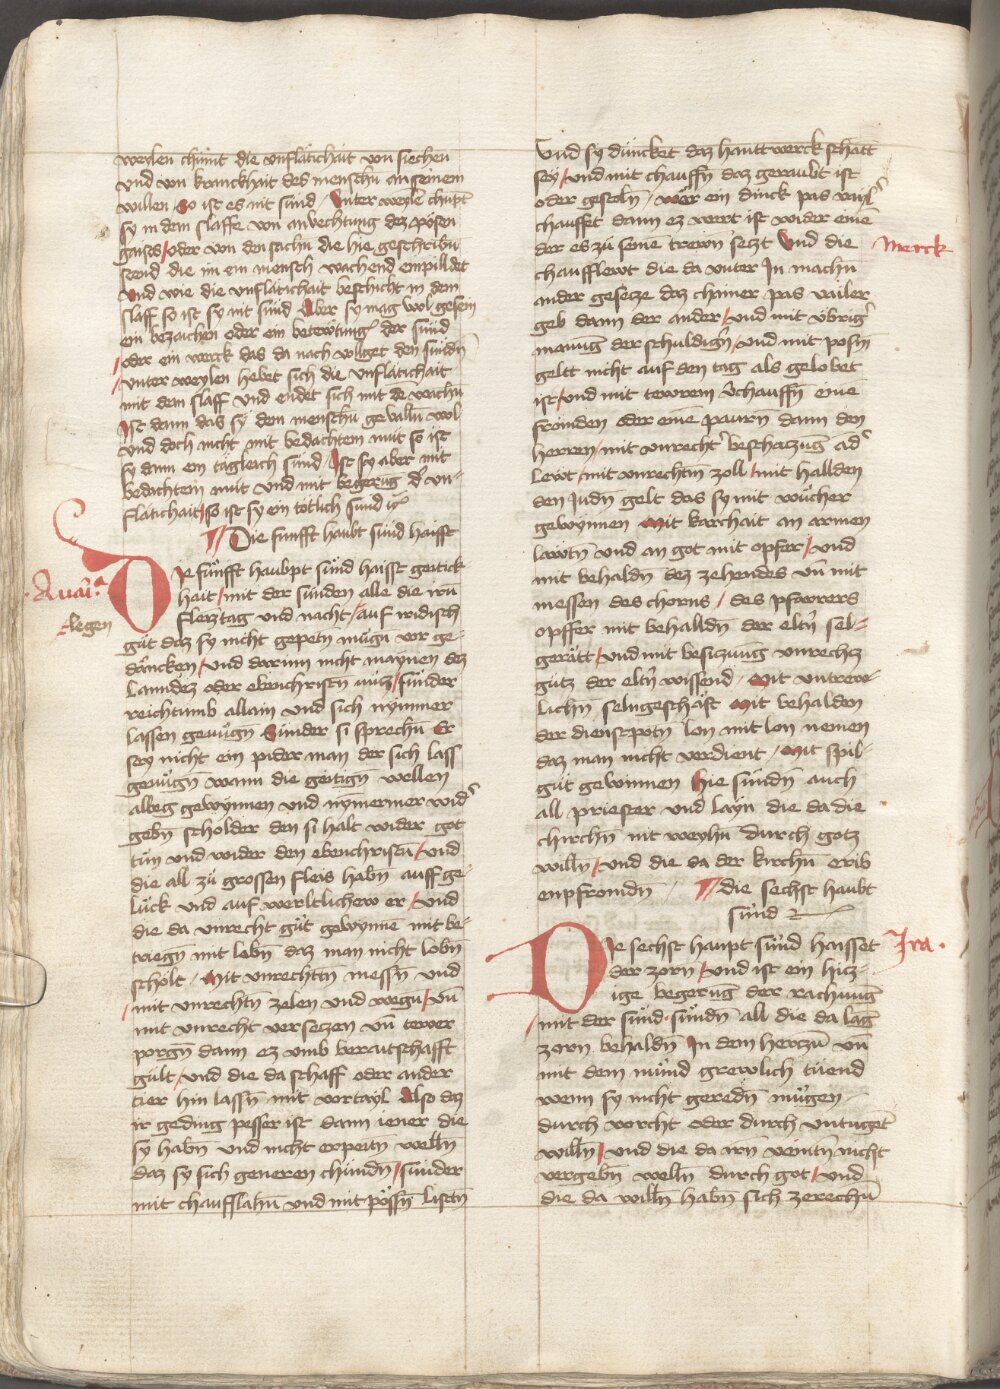 weylen chumt die vnflatichait von siechen
vnd von kranckhait des menschn̄ an seinem
willen So ist es nit sünd / Vnter weyle chūpt
sy in dem slaffe von anvechtung dez pösen
gaists / oder von den sachn̄ die hie geschribn̄
seend die im ein mensch wachend einpilldet
Vnd wie die vnflatichait beschicht in dem
slaff so ist sy nit sünd Aber sy mag wol gesein
ein bezaichen oder ein betewtung der sünd
/ oder ein werck das da nach volget den sündn̄
/ Vnter weylen hebet sich die vnflatichait
mit dem slaff vnd endet sich mit dē wachn̄
Ist dann das sy dem menschn̄ gevalln̄ wol
vnd doch nicht mit bedachtem müt so ist
sy dann ein tägleich sünd / Ist sy aber mit
bedachtem müt vnd mit begerūg der vn-
flatichait / so ist sy ein tötlich sünd
Die fünfft haubt sünd haisst
Auaric̄a
Die fünfft haubpt sünd haisst geitick
hait / mit der sünden alle die irn̄
legen
fleiz tag vnd nacht / auf irdisch
güt daz sy nicht gepetn̄ mügn̄ vor ge-
däncken / vnd darumb nicht maynen dez
lanndez oder ebenchristn̄ nücz / sunder
reichtumb allain vnd sich nymmer
lassen genügn̄ Sunder si sprechn̄ Er
sey nicht ein pider man der sich lass
genügn̄ wann die geitign̄ wellen
albeg gewynnen vnd nymermer wider
gebn̄ scholder den si halt wider got
tün vnd wider den ebenchristn̄ / vnd
die all zü grossen fleis habn̄ auff ge-
lück vnd auf werltlichew er / vnd
die da vnrecht güt gewynnē mit be-
triegn̄ mit lobn̄ daz man nicht lobn̄
scholt / Mit vnrechtn̄ messn̄ vnd
/ mit vnrechtn̄ zelen vnd wegn̄ / vn̄
mit vnrecht versetzen vn̄ tewer
porgn̄ dann ez vmb beraitschafft
gült / vnd die da schaff oder ander
tier hin lassn̄ mit vortayl Also daz
ir geding pesser ist dann iener die
sy habn̄ vnd nicht erpeitn̄ welln̄
daz sy sich generen chündn̄ / sunder
mit chaufflahn̄ vnd mit pössn̄ listn̄
Vnd sy duncket daz hanttwerck schätt
sey / vnd mit chauffn̄ daz geraubt ist
oder gestoln̄ / wer ein dinck pas vail
chauffet dann ez wert ist wider einē
der es zü seinē trewn̄ setzt Vnd die
Merck
chaufflewt die da vnter In machn̄
ander gesetze daz chainer pas vailer
geb dann der ander / vnd mit vbrigr
manug der schuldign̄ / vnd mit posn̄
geltt nicht auf den tag als gelobet
ist / vnd mit tewrem v̄chauffn̄ einē
frömden oder einē paurn̄ dann den
herren / mit vnrecht beschatzūg ad
lewt / mit vnrechtn̄ zoll / mit hallden
den Judn̄ gelt das sy mit wücher
gewynnen Mit karchait an armen
lawtn̄ vnd an got mit opfer / vnd
mit behaldn̄ dez zehendes vn̄ mit
messen des chorns / des pfarrers
opffer mit behalldn̄ der eltn̄ sel-
gerätt / vnd mit besiczung vnrechtz
gütz der eltn̄ wissend / Mit vntrew-
lichn̄ selngeschäft Mit behalden
der dienstpotn̄ lon mit lon nemen
daz man nicht verdient / Mit spil-
güt gewinnen Hie sündn̄ auch
all priester vnd layn̄ die da die
chirchn̄ nit weyhn̄ durch gotz
willn̄ / vnd die da der kirchn̄ erib
enpfromdn̄ / die sechst haubt
sünd
Die sechst haupt sünd haisset
Ira.
der zorn / vnd ist ein hicz-
ige begerūg der rachung
/ mit der sünd sündn̄ all die da lāg
zorn behaldn̄ In dem hertzn̄ vn̄
mit dem mund grewlich tüend
wenn sy nicht geredn̄ mügen
durch vorcht oder durch vntuget
willn̄ / vnd die da irn̄ veintn̄ nicht
vergebn̄ welln̄ durch got / vnd
die da willn̄ habn̄ sich zerechn̄